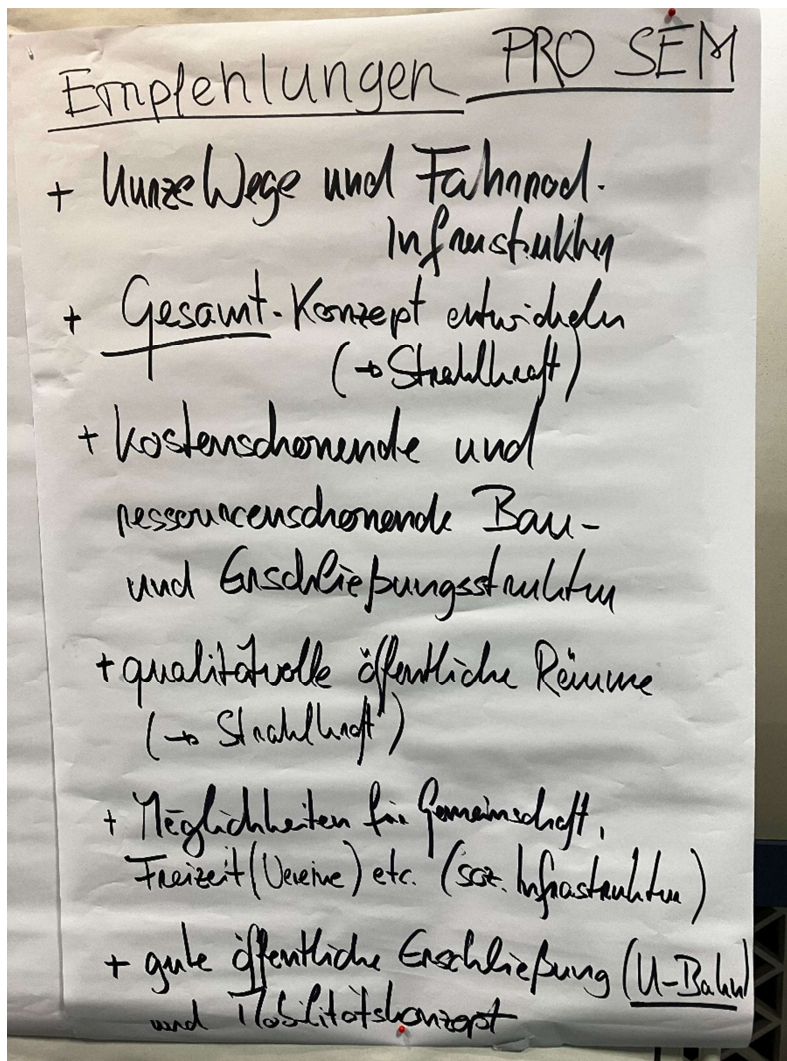 Empfehlungen PRO SEM
+ Kurze Wege und Fahrrad-
Infrastruktur
+ Gesamt-Konzept entwickeln
(→ Strahlkraft)
+ kostenschonende und
ressourcenschonende Bau-
und Erschließungsstruktur
+ qualitätvolle öffentliche Räume
(→ Strahlkraft)
+ Möglichkeiten für Gemeinschaft,
Freizeit (Vereine) etc. (soz. Infrastruktur)
+ gute öffentliche Erschließung (U-Bahn)
und Mobilitätskonzept